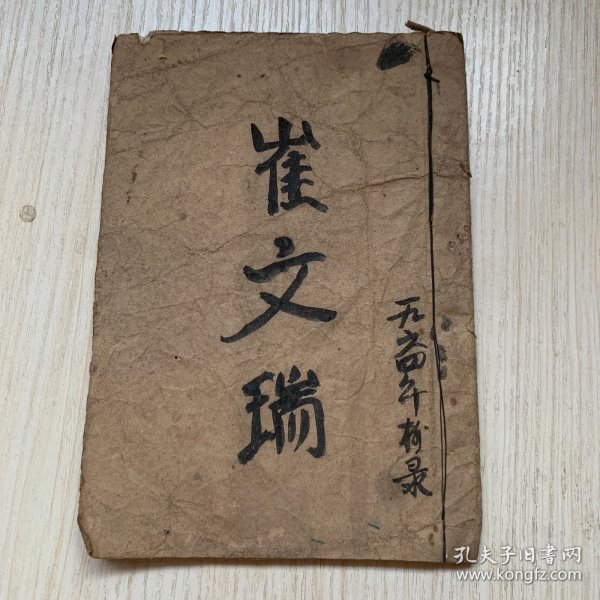 崔文瑞
一九六四年抄录
孔夫子旧書网
www.kongfz.com